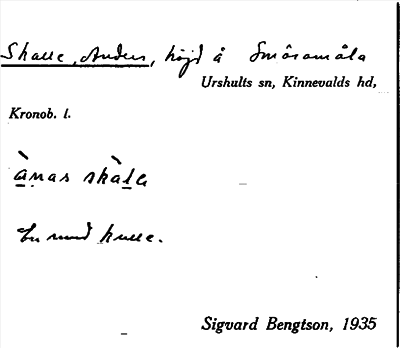 Skalle, Anders, höjd å Smöramåla
Urshults sn, Kinnevalds hd,
Kronob. l.
ànas skàla
En rund kulle.
Sigvard Bengtson, 1935